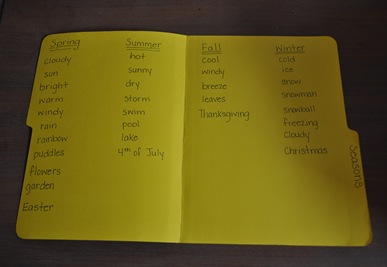 Spring
cloudy
sun
bright
warm
windy
rain
rainbow
puddles
flowers
garden
Easter
Summer
hot
sunny
dry
storm
swim
pool
lake
4th of July
Fall
cool
windy
breeze
leaves
Thanksgiving
Winter
cold
ice
snow
snowman
snowball
freezing
Cloudy
Christmas
Seasons